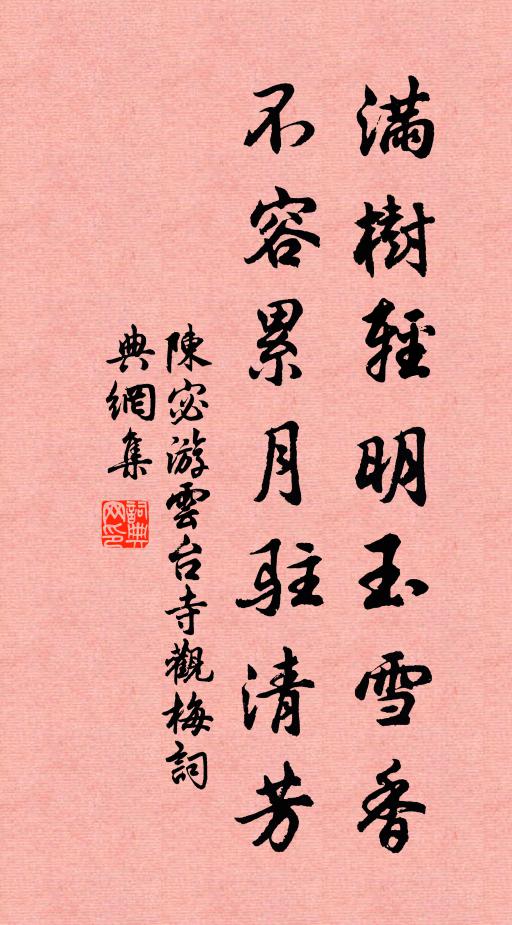 滿樹輕明玉雪香
不容累月駐清芳
陳宓游雲台寺觀梅詞
典網集
詞典網印